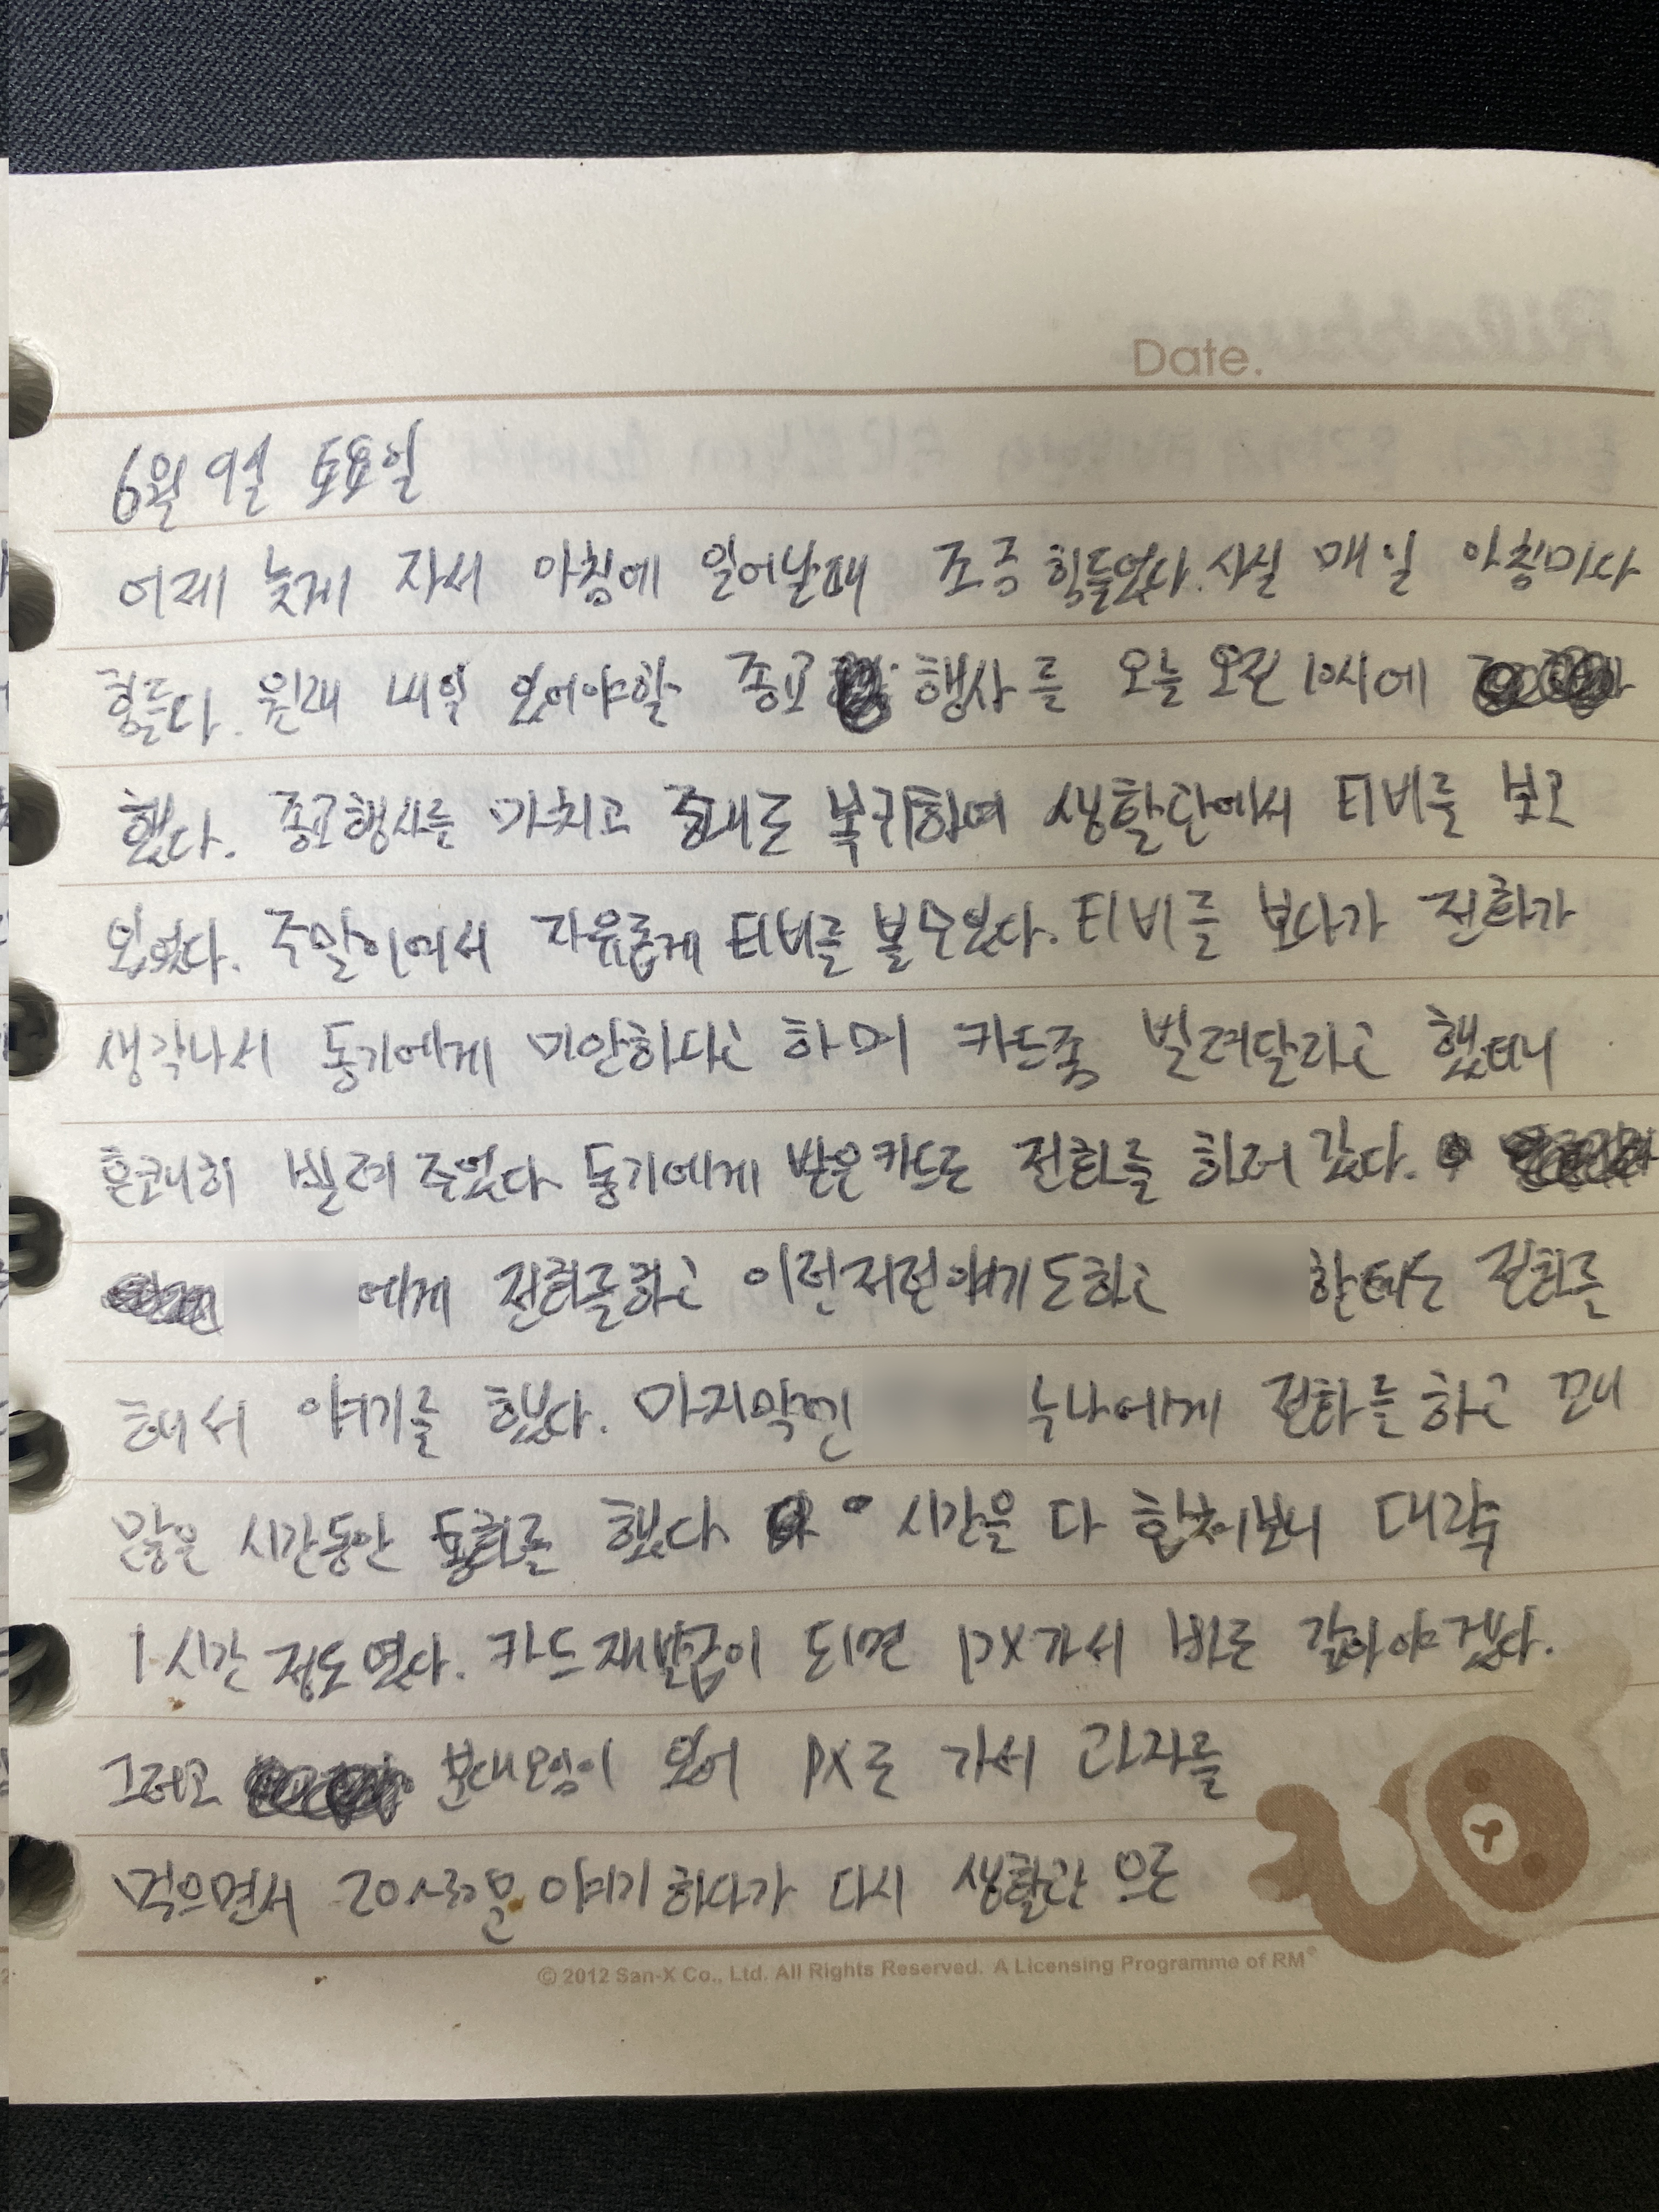 Date.
6월 9일 토요일
어제 늦게 자서 아침에 일어날때 조금 힘들었다. 사실 매일 아침마다
힘들다. 원래 내일 있어야할 종교 행사를 오늘 오전 10시에
했다. 종교행사를 마치고 중대로 복귀하여 생활관에서 티비를 보고
있었다. 주말이여서 자유롭게 티비를 볼수있다. 티비를 보다가 전화가
생각나서 동기에게 미안하다고 하며 카드좀 빌려달라고 했더니
흔쾌히 빌려 주었다 동기에게 받은카드로 전화를 하러 갔다.
에게 전화를하고 이런저런얘기도하고 한테는 전화를
해서 얘기를 했다. 마지막엔 누나에게 전화를하고 꽤
많은 시간동안 통화를 했다. 시간을 다 합쳐보니 대략
1시간 정도였다. 카드재발급이 되면 PX가서 바로 갚아야겠다.
그리고 분대모임이 있어 PX로 가서 과자를
먹으면서 20~30분 얘기하다가 다시 생활관으로
© 2012 San-X Co., Ltd. All Rights Reserved. A Licensing Programme of RM®